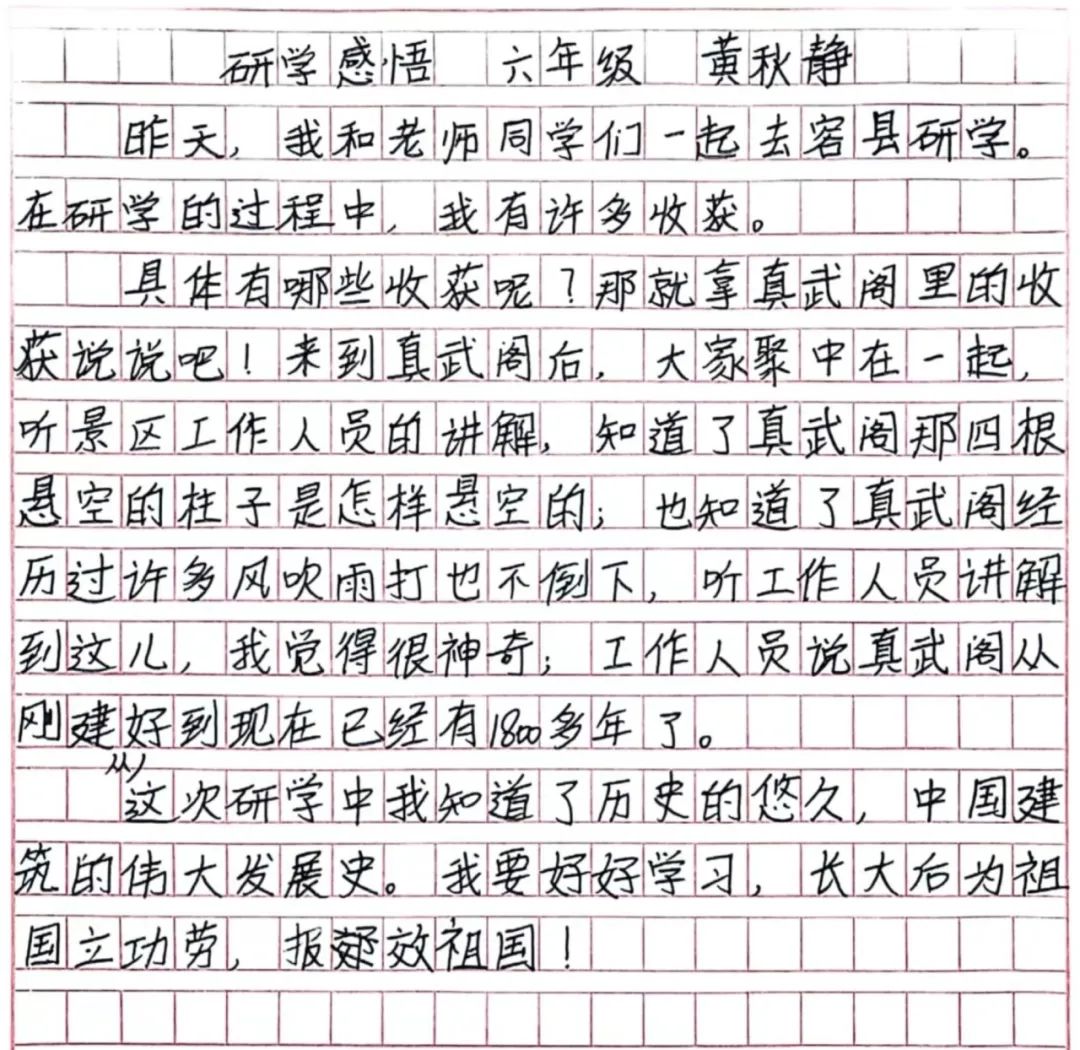 研学感悟 六年级 黄秋静
昨天，我和老师同学们一起去容县研学。
在研学的过程中，我有许多收获。
具体有哪些收获呢？那就拿真武阁里的收
获说说吧！来到真武阁后，大家聚中在一起，
听景区工作人员的讲解，知道了真武阁那四根
悬空的柱子是怎样悬空的；也知道了真武阁经
历过许多风吹雨打也不倒下，听工作人员讲解
到这儿，我觉得很神奇；工作人员说真武阁从
刚建好到现在已经有1800多年了。
从这次研学中我知道了历史的悠久，中国建
筑的伟大发展史。我要好好学习，长大后为祖
国立功劳，报效祖国！